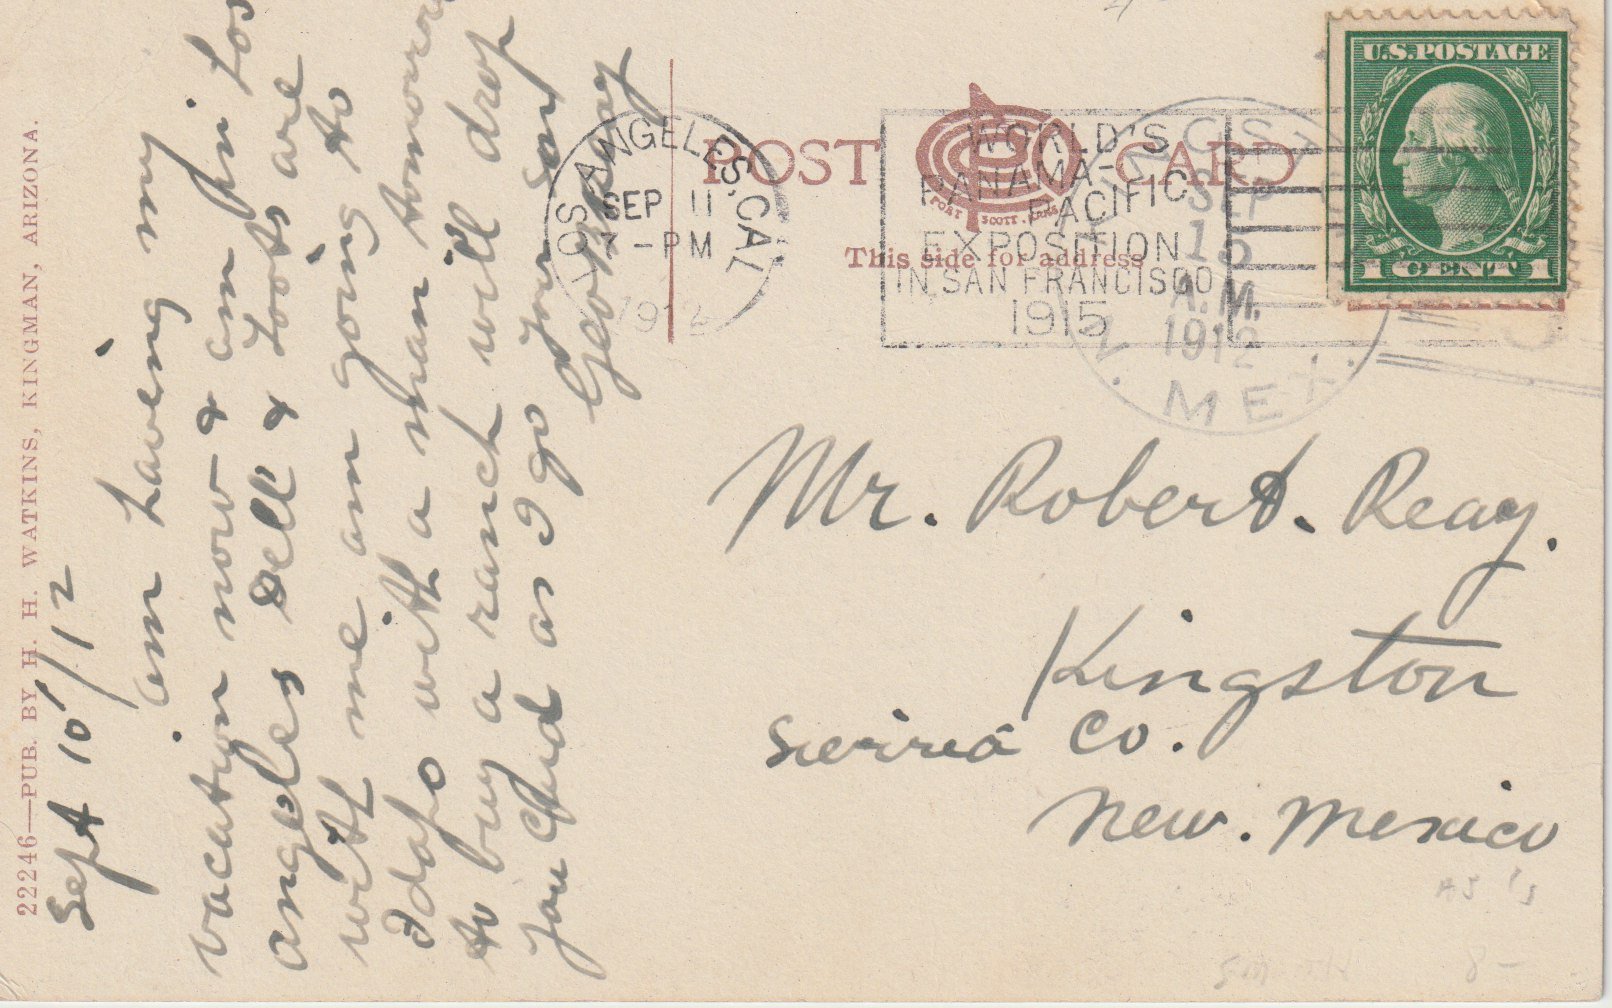 22246—PUB. BY H. H. WATKINS, KINGMAN, ARIZONA.
Sept 10/12
am having my
vacation now & am in Los
angeles Dell & Toots are
with me am going to
Idaho with a man tomorrow
to buy a ranch will drop
you card as I go your son
Geo
POST CARD
POST SCOTT, KANS
This side for address
LOS ANGELES, CAL.
SEP 11
7-PM
1912
WORLD'S
PANAMA-
PACIFIC
EXPOSITION
IN SAN FRANCISCO
1915
KINGSTON
SEP
15
A.M.
1912
N. MEX.
U.S. POSTAGE
1 CENT 1
Mr. Robert. Reay.
Kingston
Sierra Co.
New. Mexico
as is
8-